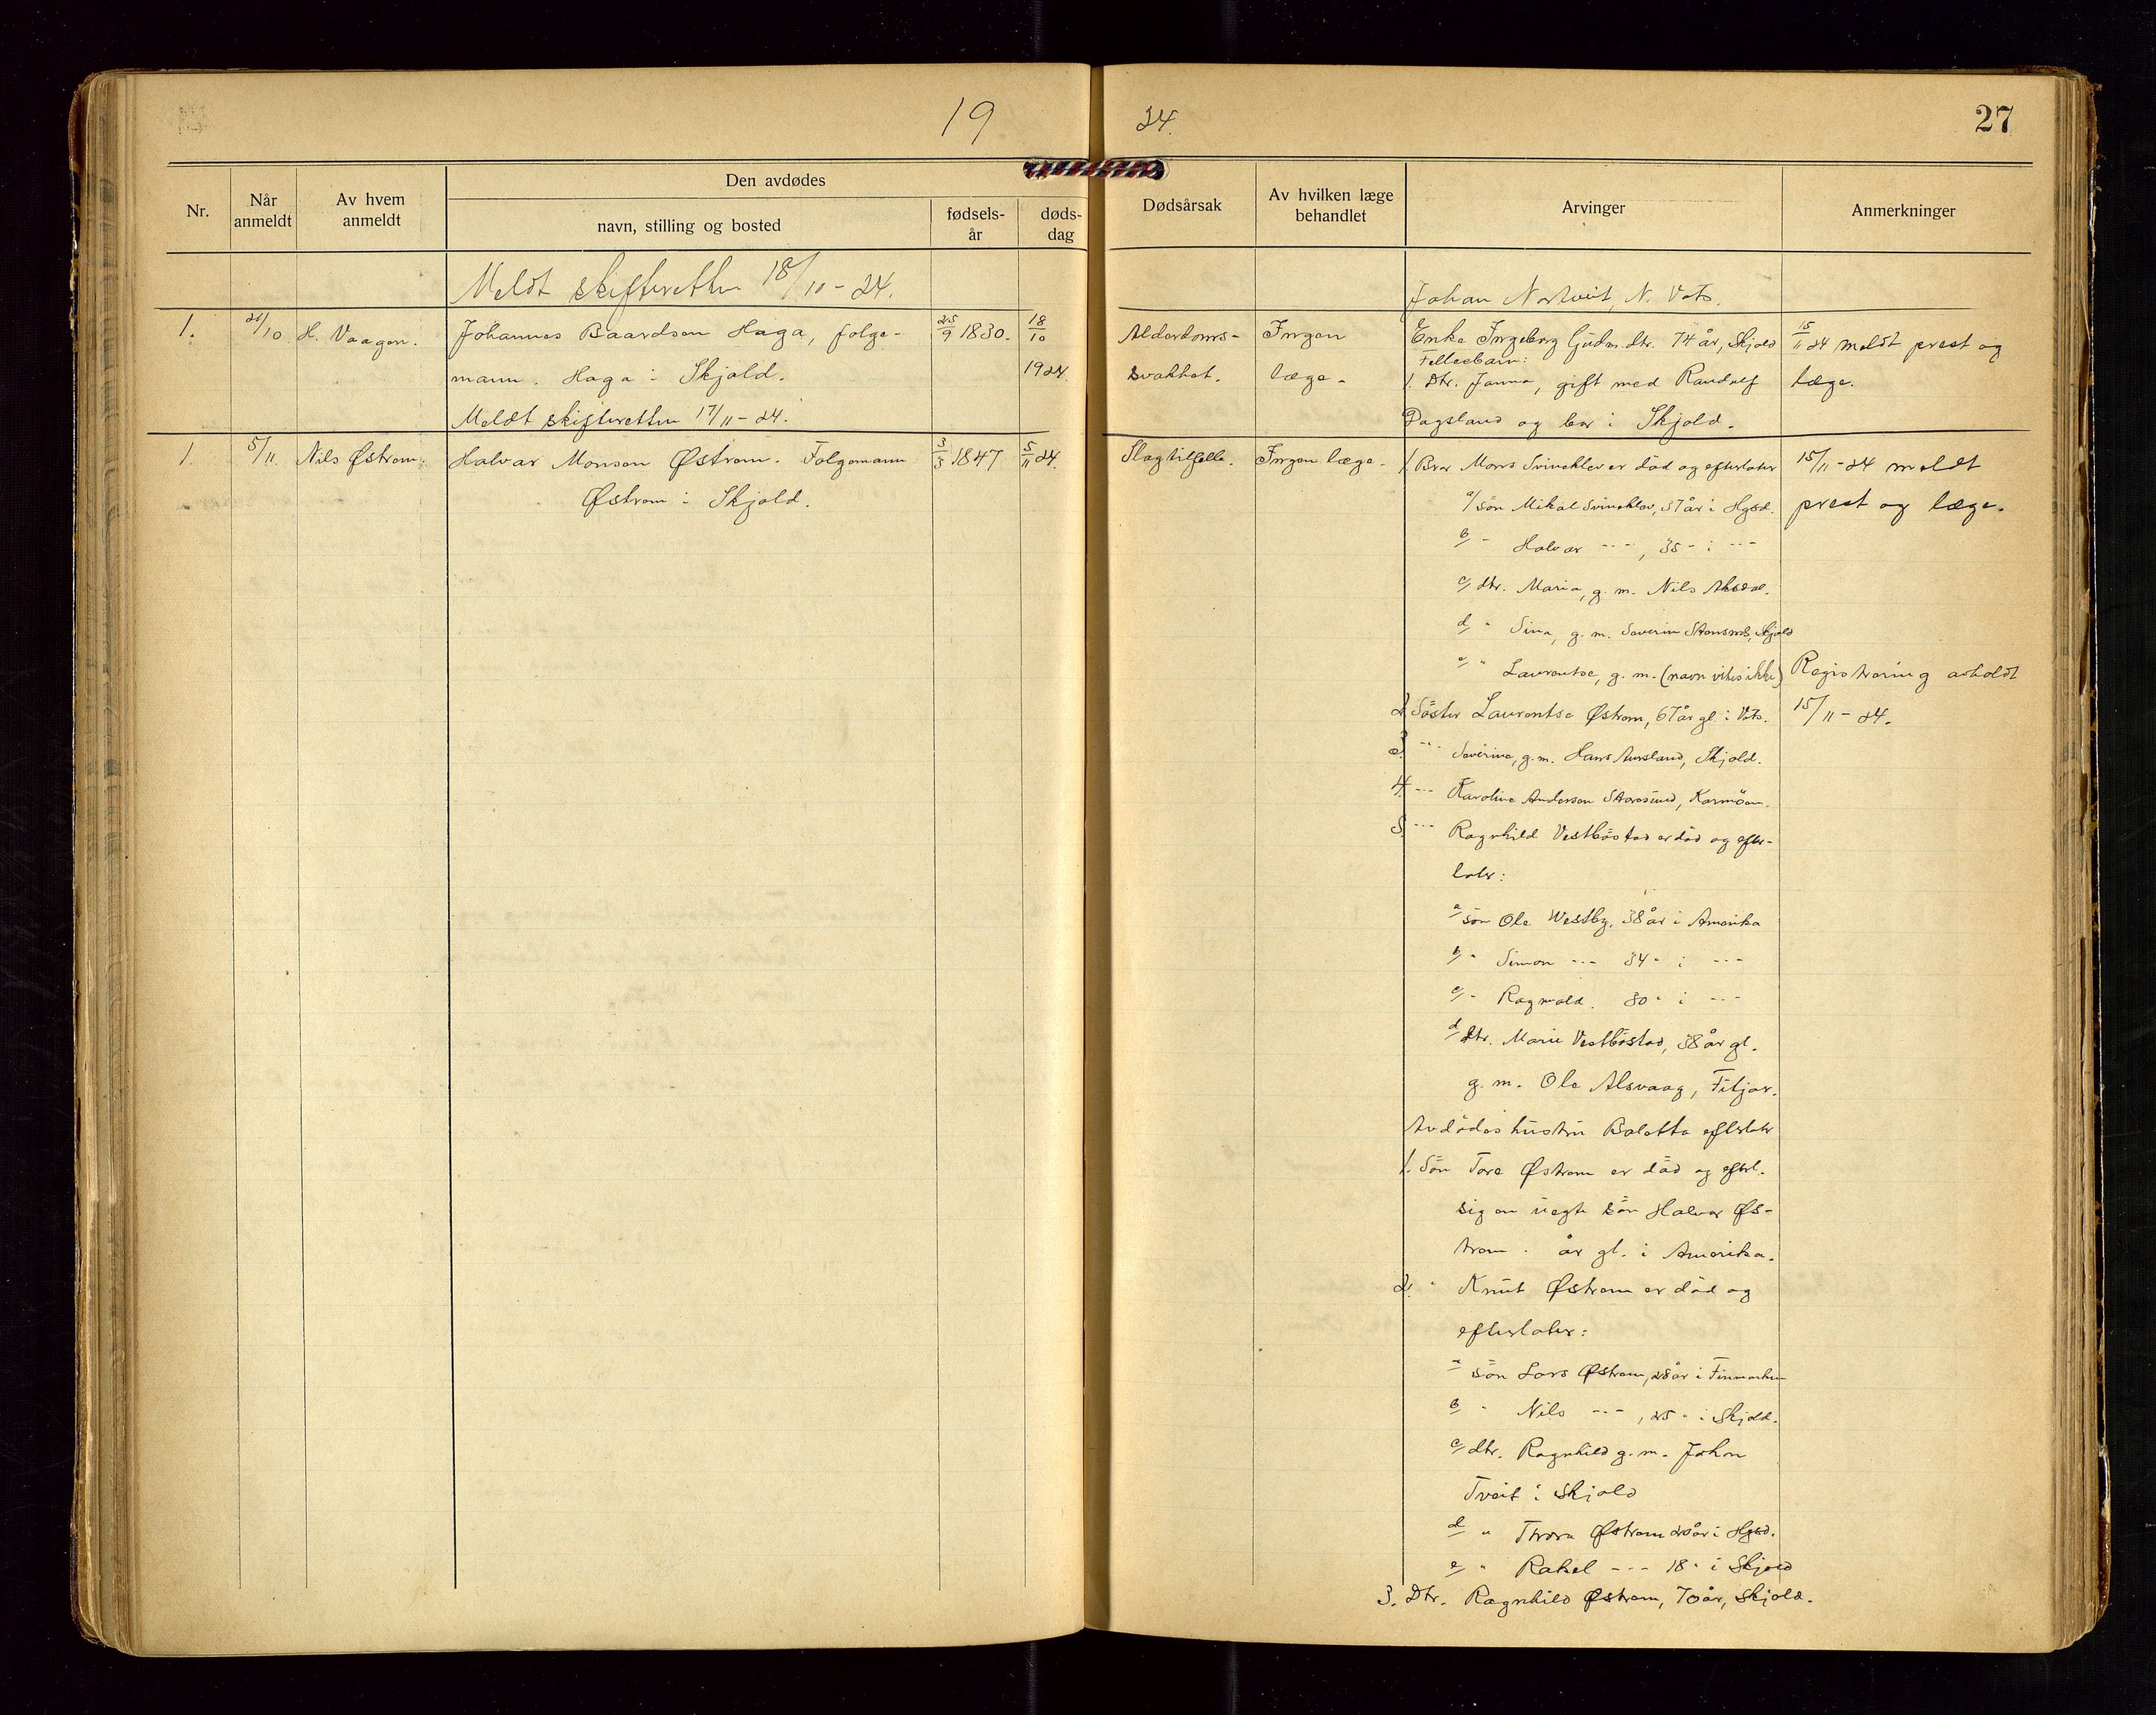 19 24.
27
Nr.
Når anmeldt
Av hvem anmeldt
Den avdødes
navn, stilling og bosted
fødsels-år
døds-dag
Dødsårsak
Av hvilken læge behandlet
Arvinger
Anmerkninger
Meldt skifteretten 18/10-24.
Johan Nortveit, N. Vats.
1. 21/10 H. Vaagen. Johannes Baardsen Haga, følge-
mann. Haga i Skjold.
25/9 1830. 18/10
1924.
Meldt skifteretten 17/11-24.
Alderdoms-
svakhet.
Ingen
læge.
Enke Ingeborg Gudm.dtr. 74 år, Skjold
Fellesbarn:
1. Dtr. Janna, gift med Raudulf
Dagsland og bor i Skjold.
15/11 24 meldt prest og
læge.
1. 5/11. Nils Østrem. Halvar Monsen Østrem. Følgemann
Østrem i Skjold.
3/3 1847 5/11 24.
Slagtilfelle. Ingen læge.
1. Bror Mons Svineklev er död og efterlater
a/ sön Mikal Svineklev, 37 år i Hgsd.
b/ - Halvar --- , 35 - i ---
c/ dtr. Maria, g. m. Nils Aksdal.
d/ " Sina, g. m. Severin Stonsnes, Skjold
e/ " Laurentse, g. m. (navn vites ikke)
2. Söster Laurentse Østrem, 67 år gl. i Vats.
3. --- Severine, g. m. Hans Aursland, Skjold.
4. --- Karoline Andersen Storesund, Karmöen.
5. --- Ragnhild Vestböstad er död og efter-
later:
a/ sön Ole Westby, 38 år i Amerika
b/ - Simon --- 34 - i ---
c/ - Ragnvald. 30 - i ---
d/ Dtr. Marie Vestböstad, 38 år gl.
g. m. Ole Alsvaag, Fitjar.
Avdödes hustru Baletta efterlater
1. Sön Tore Østrem er död og efterl.
sig en uegte sön Halvar Øs-
trem. år gl. i Amerika.
2. " Knut Østrem er död og
efterlater:
a/ sön Lars Østrem, 28 år i Finmarken
b/ " Nils --- , 25 " i Skjold.
c/ dtr. Ragnhild g. m. Johan
Tveit i Skjold
d/ " Thora Østrem 20 år i Hgsd.
e/ " Rakel --- 18 " i Skjold
3. Dtr. Ragnhild Østrem, 70 år, Skjold.
15/11-24 meldt
prest og læge.
Registrering avholdt
15/11-24.